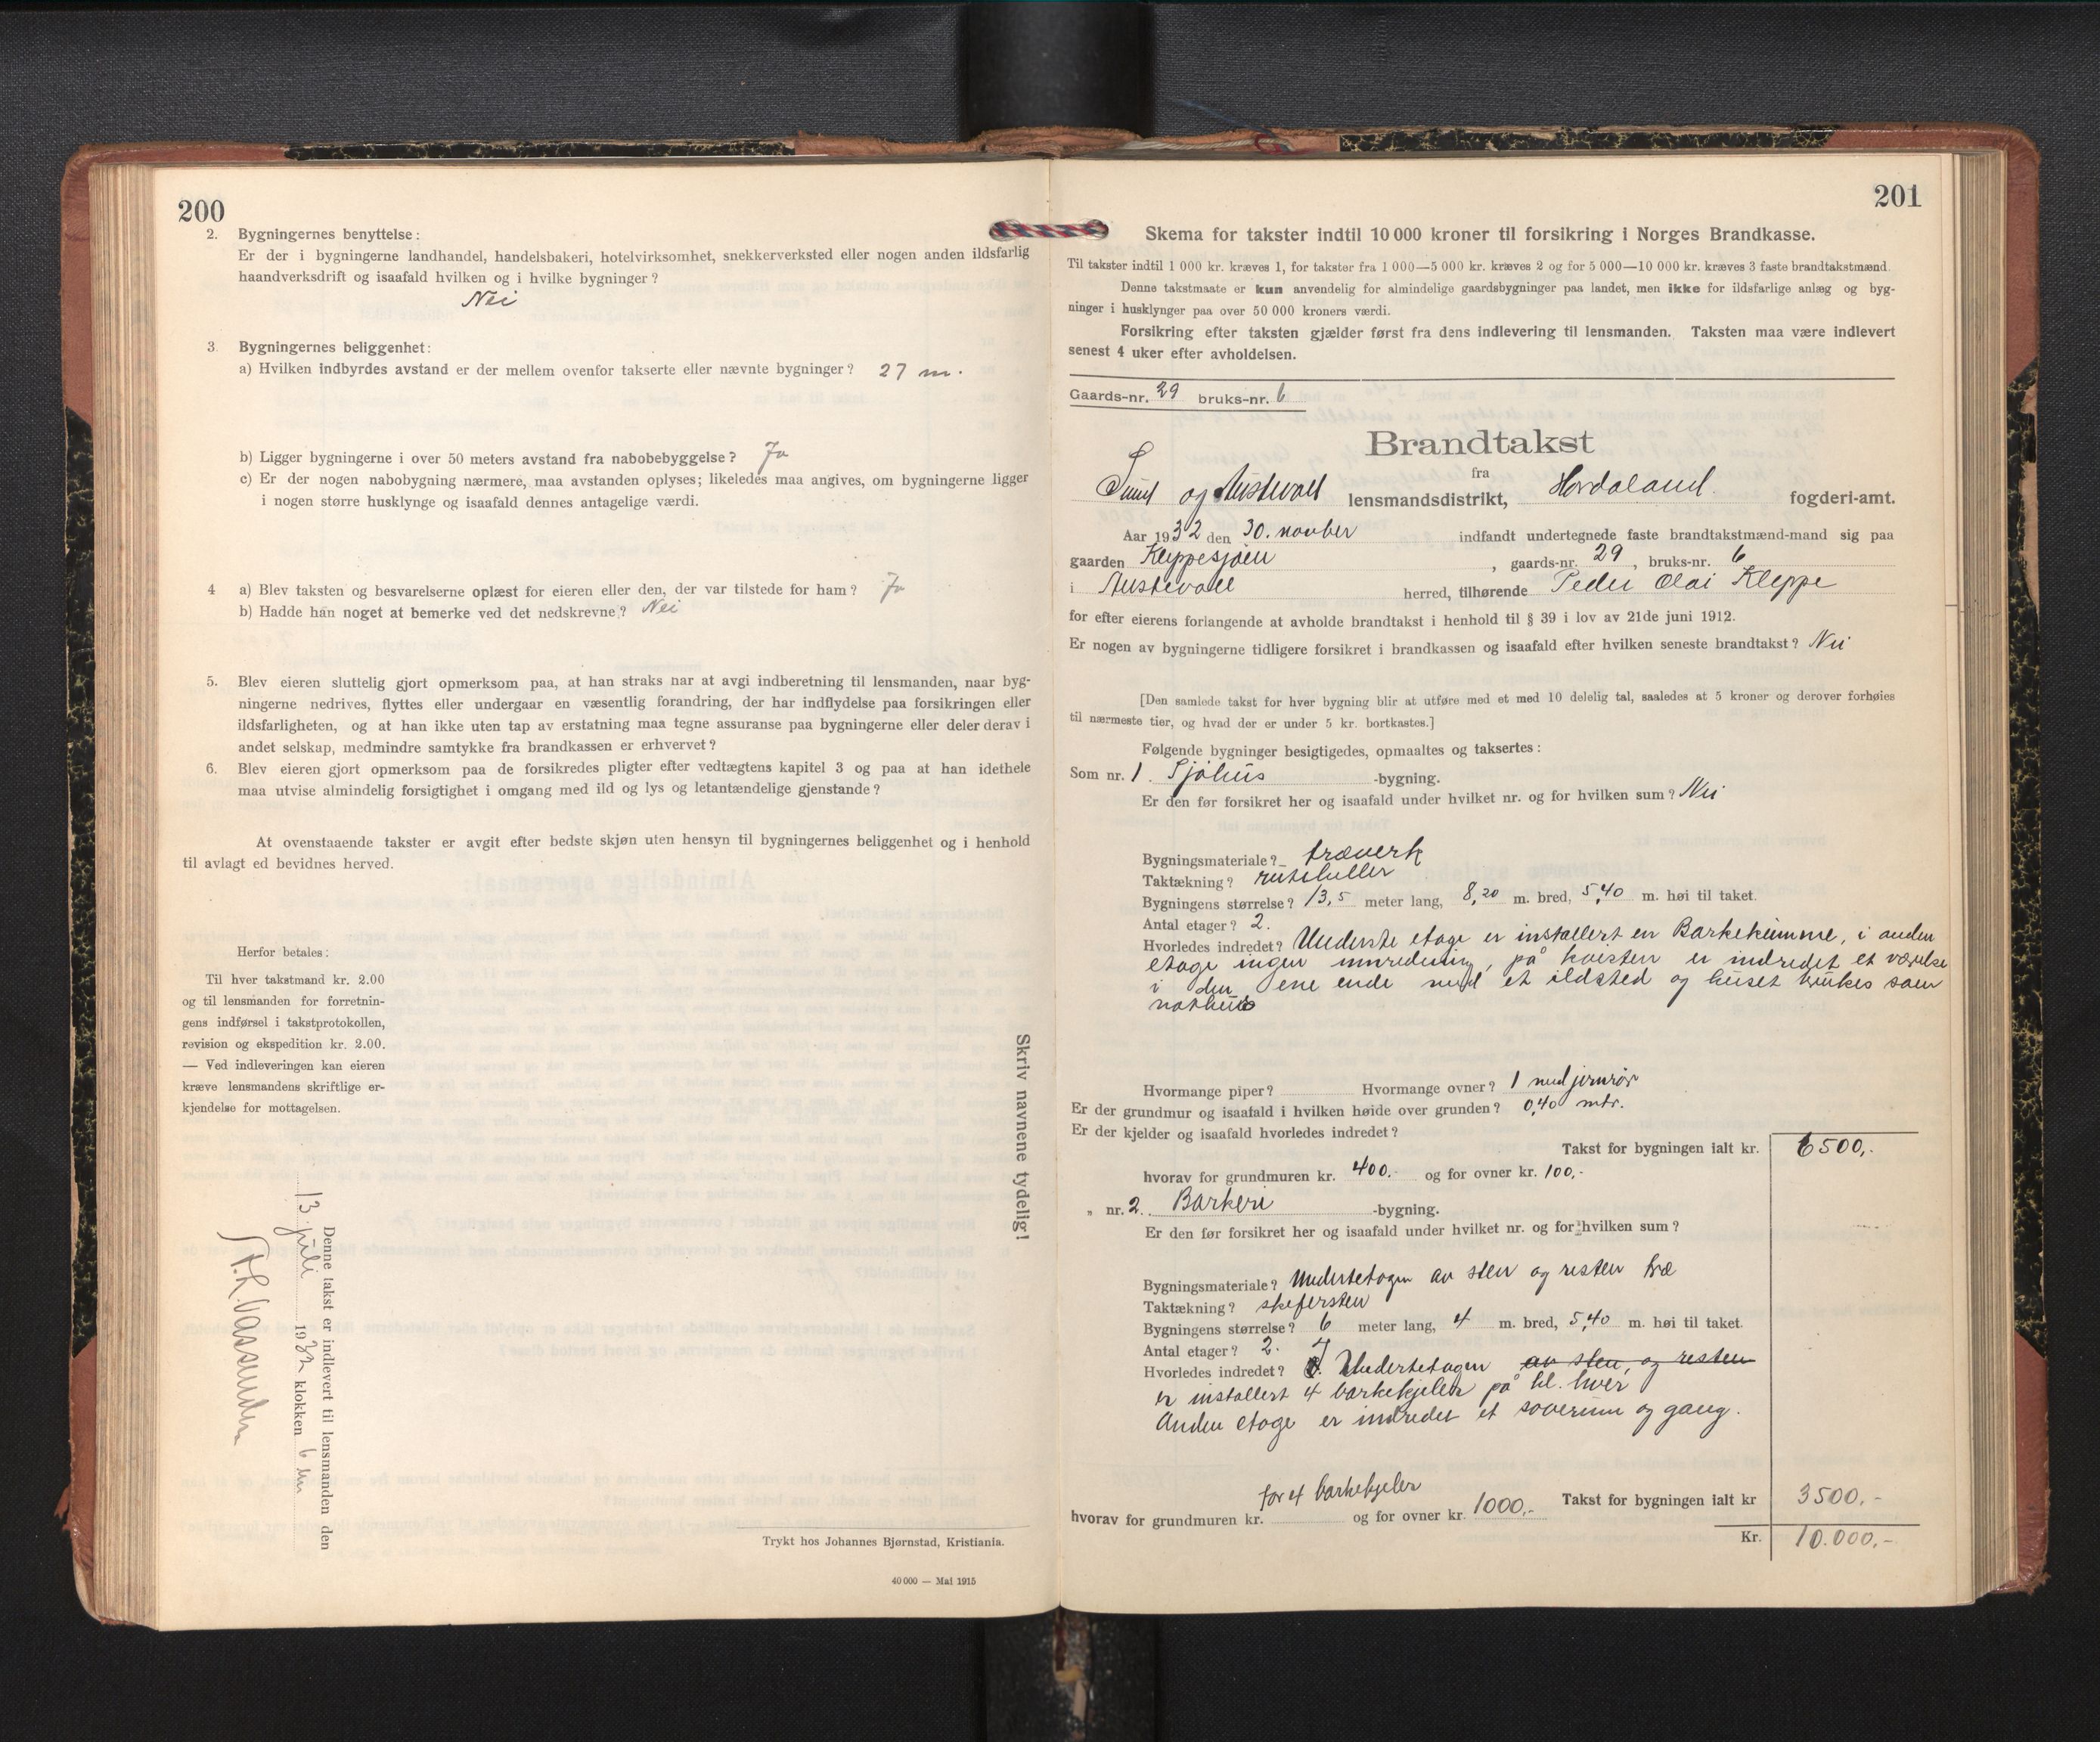 200
2. Bygningernes benyttelse:
Er der i bygningerne landhandel, handelsbakeri, hotelvirksomhet, snekkerverksted eller nogen anden ildsfarlig
haandverksdrift og isaafald hvilken og i hvilke bygninger?
Nei
3. Bygningernes beliggenhet:
a) Hvilken indbyrdes avstand er der mellem ovenfor takserte eller nævnte bygninger? 27 m.
b) Ligger bygningerne i over 50 meters avstand fra nabobebyggelse? Ja
c) Er der nogen nabobygning nærmere, maa avstanden oplyses; likeledes maa angives, om bygningerne ligger
i nogen større husklynge og isaafald dennes antagelige værdi.
4 a) Blev taksten og besvarelserne oplæst for eieren eller den, der var tilstede for ham? Ja
b) Hadde han noget at bemerke ved det nedskrevne? Nei
5. Blev eieren sluttelig gjort opmerksom paa, at han straks har at avgi indberetning til lensmanden, naar byg-
ningerne nedrives, flyttes eller undergaar en væsentlig forandring, der har indflydelse paa forsikringen eller
ildsfarligheten, og at han ikke uten tap av erstatning maa tegne assuranse paa bygningerne eller deler derav i
andet selskap, medmindre samtykke fra brandkassen er erhvervet?
6. Blev eieren gjort opmerksom paa de forsikredes pligter efter vedtægtens kapitel 3 og paa at han idethele
maa utvise almindelig forsigtighet i omgang med ild og lys og letantændelige gjenstande?
At ovenstaaende takster er avgit efter bedste skjøn uten hensyn til bygningernes beliggenhet og i henhold
til avlagt ed bevidnes herved.
Herfor betales:
Til hver takstmand kr. 2.00
og til lensmanden for forretnin-
gens indførsel i takstprotokollen,
revision og ekspedition kr. 2.00.
— Ved indleveringen kan eieren
kræve lensmandens skriftlige er-
kjendelse for mottagelsen.
Skriv navnene tydelig!
Denne takst er indlevert til lensmanden den
13 juli 1932 klokken 6
Trykt hos Johannes Bjørnstad, Kristiania.
40 000 — Mai 1915
201
Skema for takster indtil 10 000 kroner til forsikring i Norges Brandkasse.
Til takster indtil 1 000 kr. kræves 1, for takster fra 1 000—5 000 kr. kræves 2 og for 5 000—10 000 kr. kræves 3 faste brandtakstmænd.
Denne takstmaate er kun anvendelig for almindelige gaardsbygninger paa landet, men ikke for ildsfarlige anlæg og byg-
ninger i husklynger paa over 50 000 kroners værdi.
Forsikring efter taksten gjælder først fra dens indlevering til lensmanden. Taksten maa være indlevert
senest 4 uker efter avholdelsen.
Gaards-nr. 29 bruks-nr. 6
Brandtakst
fra
Sund og Austevoll lensmandsdistrikt, Hordaland. fogderi-amt.
Aar 1932 den 30. november indfandt undertegnede faste brandtakstmænd-mand sig paa
gaarden Kleppesjøen , gaards-nr. 29 , bruks-nr. 6
i Austevoll herred, tilhørende Peder Olai Kleppe
for efter eierens forlangende at avholde brandtakst i henhold til § 39 i lov av 21de juni 1912.
Er nogen av bygningerne tidligere forsikret i brandkassen og isaafald efter hvilken seneste brandtakst? Nei
[Den samlede takst for hver bygning blir at utføre med et med 10 delelig tal, saaledes at 5 kroner og derover forhøies
til nærmeste tier, og hvad der er under 5 kr. bortkastes.]
Følgende bygninger besigtigedes, opmaaltes og taksertes:
Som nr. 1. Sjøhus -bygning.
Er den før forsikret her og isaafald under hvilket nr. og for hvilken sum? Nei
Bygningsmateriale? træverk
Taktækning? ruteheller
Bygningens størrelse? 13,5 meter lang, 8,20 m. bred, 5,40 m. høi til taket.
Antal etager? 2.
Hvorledes indredet? Underste etage er installert en Barkekumme, i anden
etage ingen innredning, på kvisten er indredet et værelse
i den ene ende med et ildsted og huset brukes som
nothus
Hvormange piper? Hvormange ovner? 1 med jernrør
Er der grundmur og isaafald i hvilken høide over grunden? 0,40 mtr.
Er der kjelder og isaafald hvorledes indredet?
Takst for bygningen ialt kr. 6500,-
hvorav for grundmuren kr. 400.- og for ovner kr. 100,-
„ nr. 2. Barkeri -bygning.
Er den før forsikret her og isaafald under hvilket nr. og for hvilken sum?
Bygningsmateriale? Underetagen av sten og resten træ
Taktækning? skifersten
Bygningens størrelse? 6 meter lang, 4 m. bred, 5,40 m. høi til taket.
Antal etager? 2.
Hvorledes indredet? I Underetagen av sten, og resten
er installert 4 barkekjeler på hl. hver
Anden etage er indredet et soverum og gang.
for 4 barkekjeler
Takst for bygningen ialt kr 3500,-
hvorav for grundmuren kr. og for ovner kr. 1000,-
Kr. 10.000,-